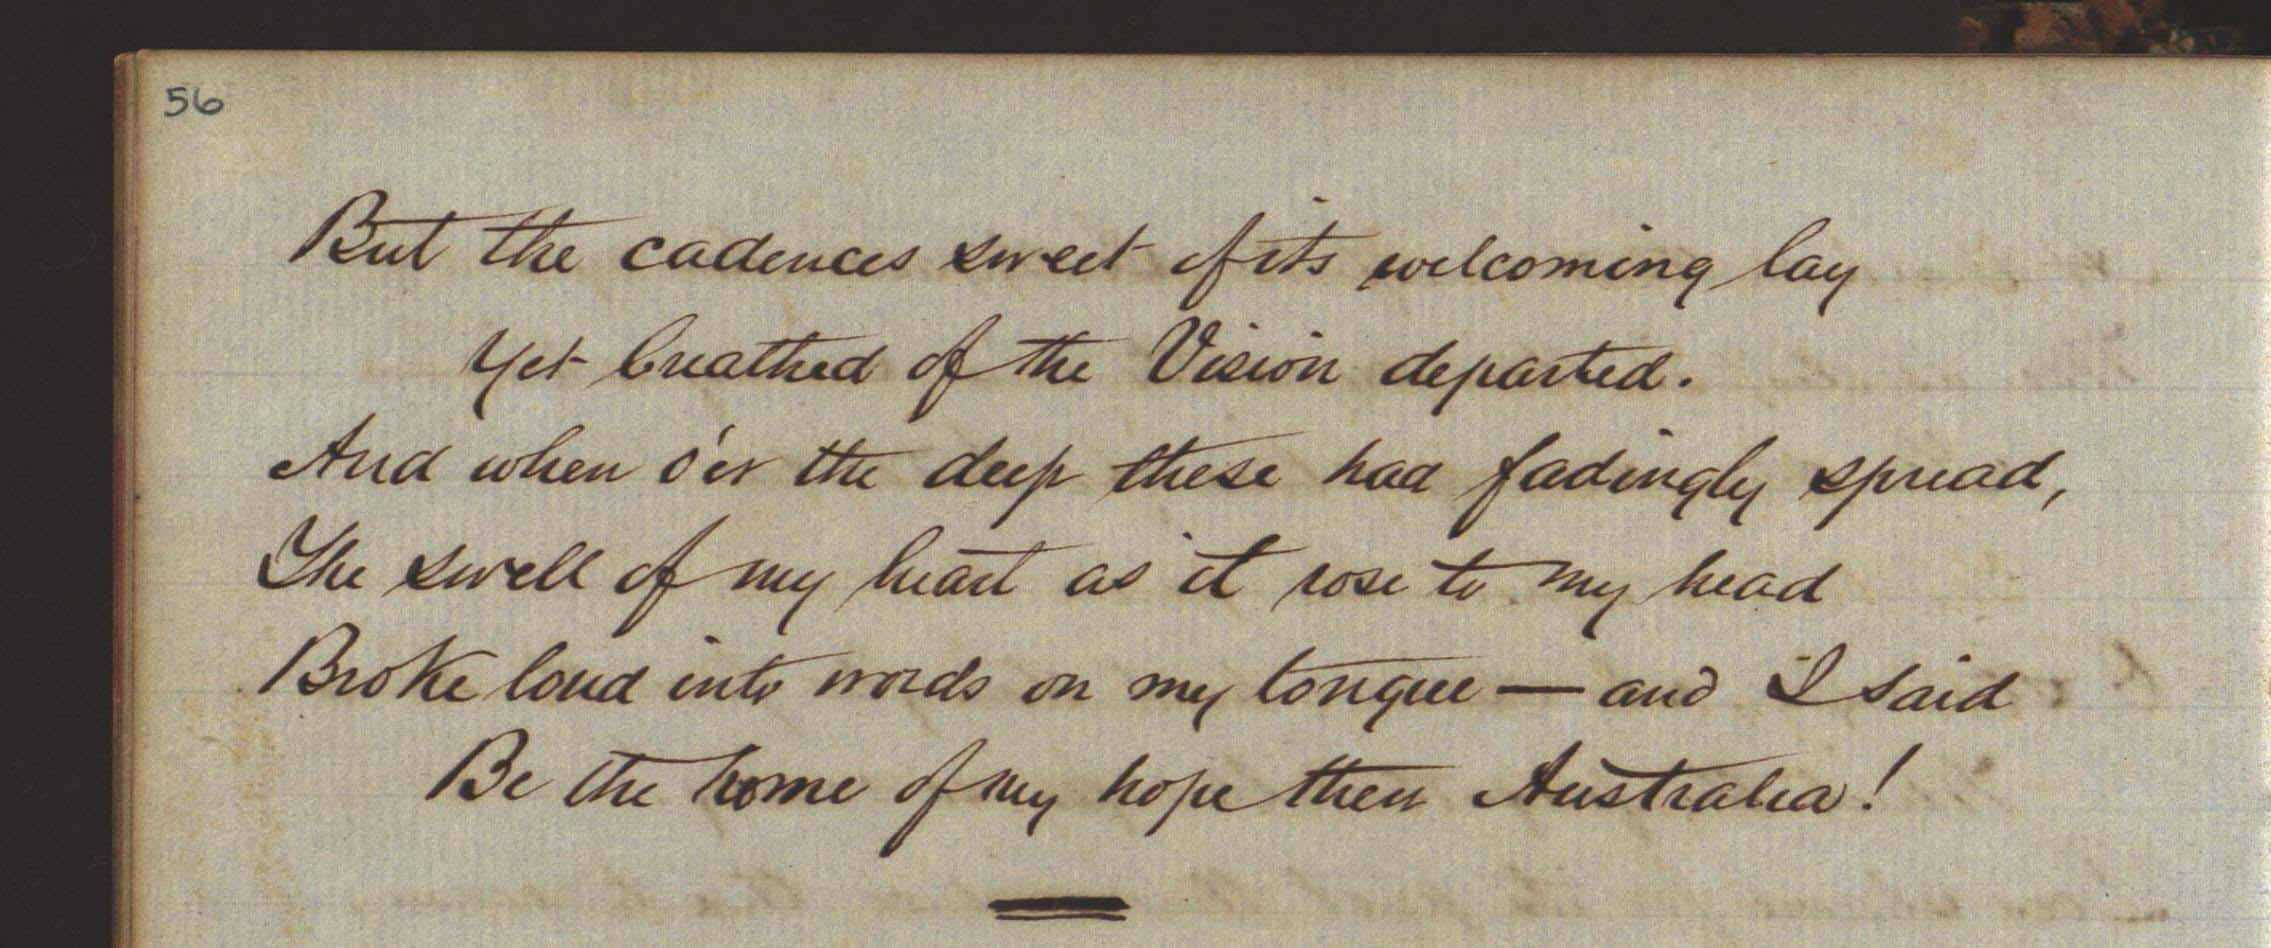 56
But the cadences sweet of its welcoming lay
Yet breathed of the Vision departed.
And when o'er the deep these had fadingly spread,
The swell of my heart as it rose to my head
Broke loud into words on my tongue — and I said
Be the home of my hope then Australia!